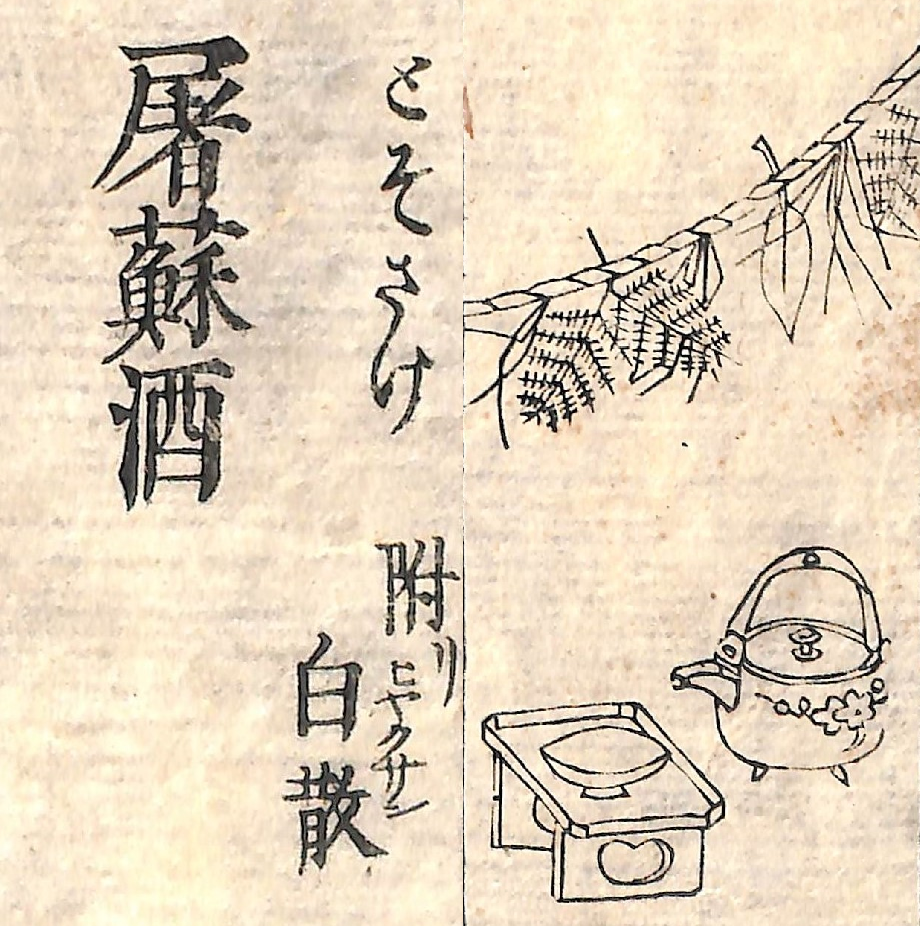 とそさけ
屠蘇酒
附リ
ヒヤクサン
白散